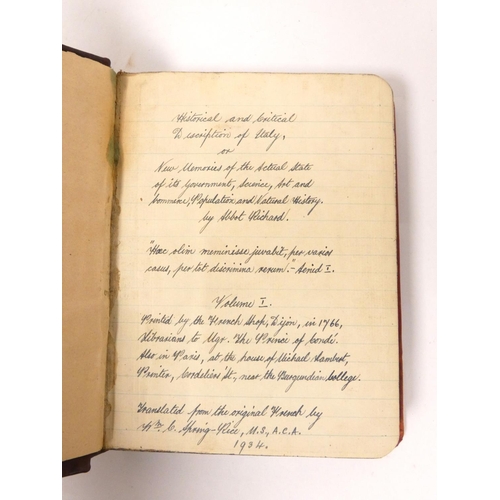 Historical and Critical
Discription of Italy,
or
New Memories of the Actual State
of its Government, Science, Art and
Commerce, Population and Natural History.
by Abbot Richard.
"Haec olim meminisse juvabit, per varios
casus, per tot discrimina rerum." - Aenid I.
Volume I.
Printed by the French Shop, Dijon, in 1766,
Librarians to Mgr. The Prince of Condé.
Also in Paris, at the house of Michael Lambert,
Printer, Cordeliers St., near the Burgundian College.
Translated from the original French by
Wm C. Spring-Rice, M.S., A.C.A.
1934.